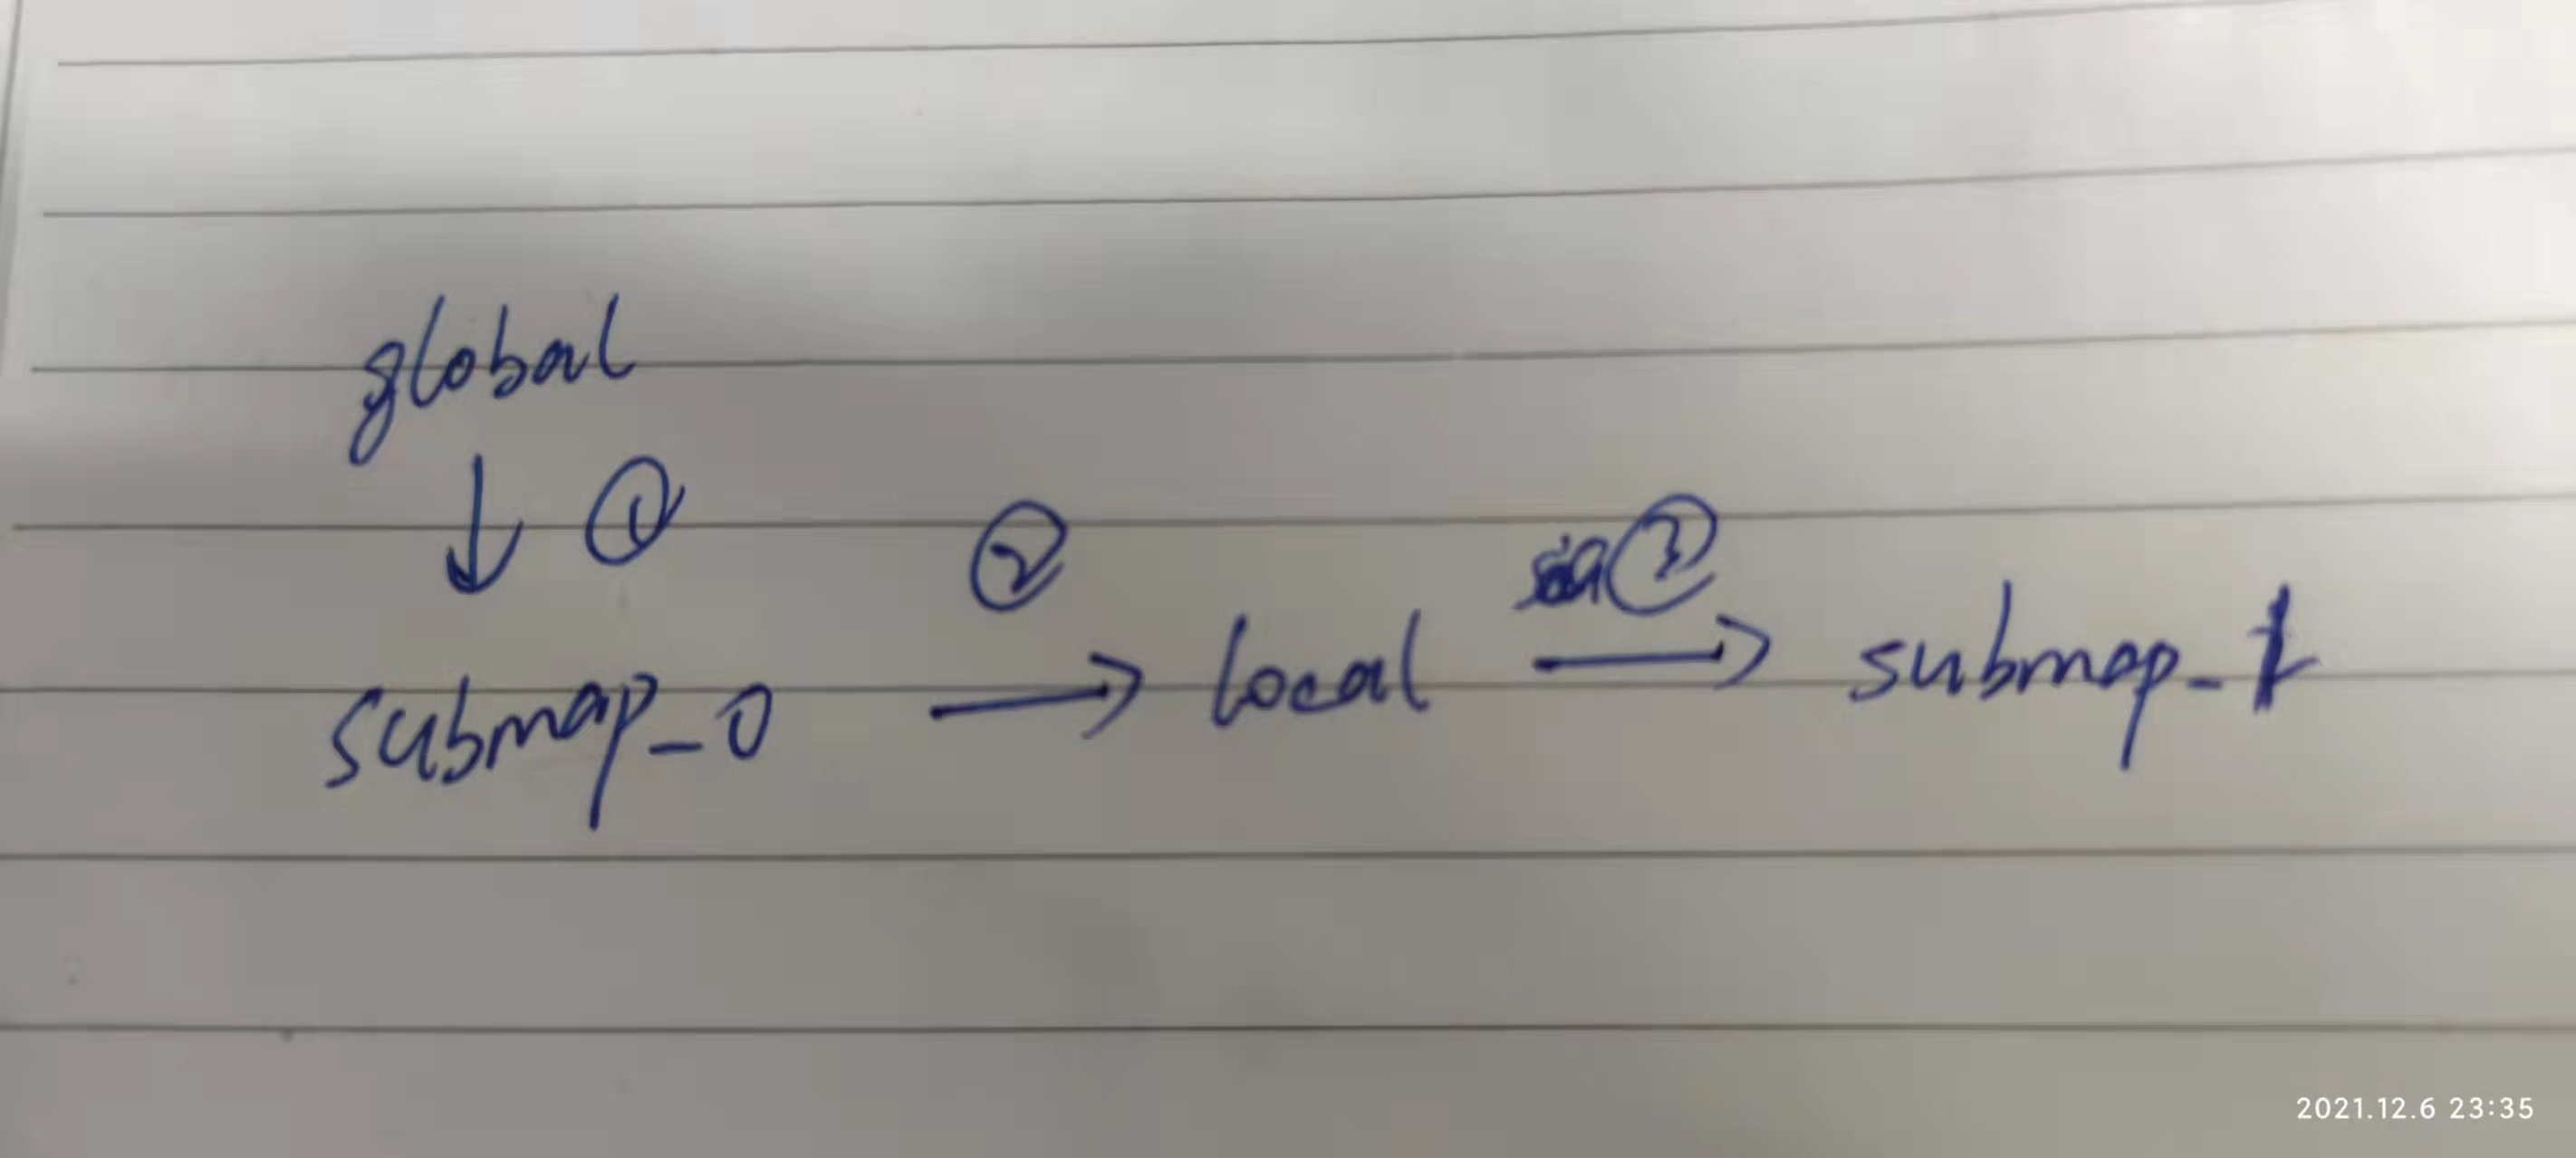 global
↓ ①
② ③
submap_0 → local → submap_1
2021.12.6 23:35